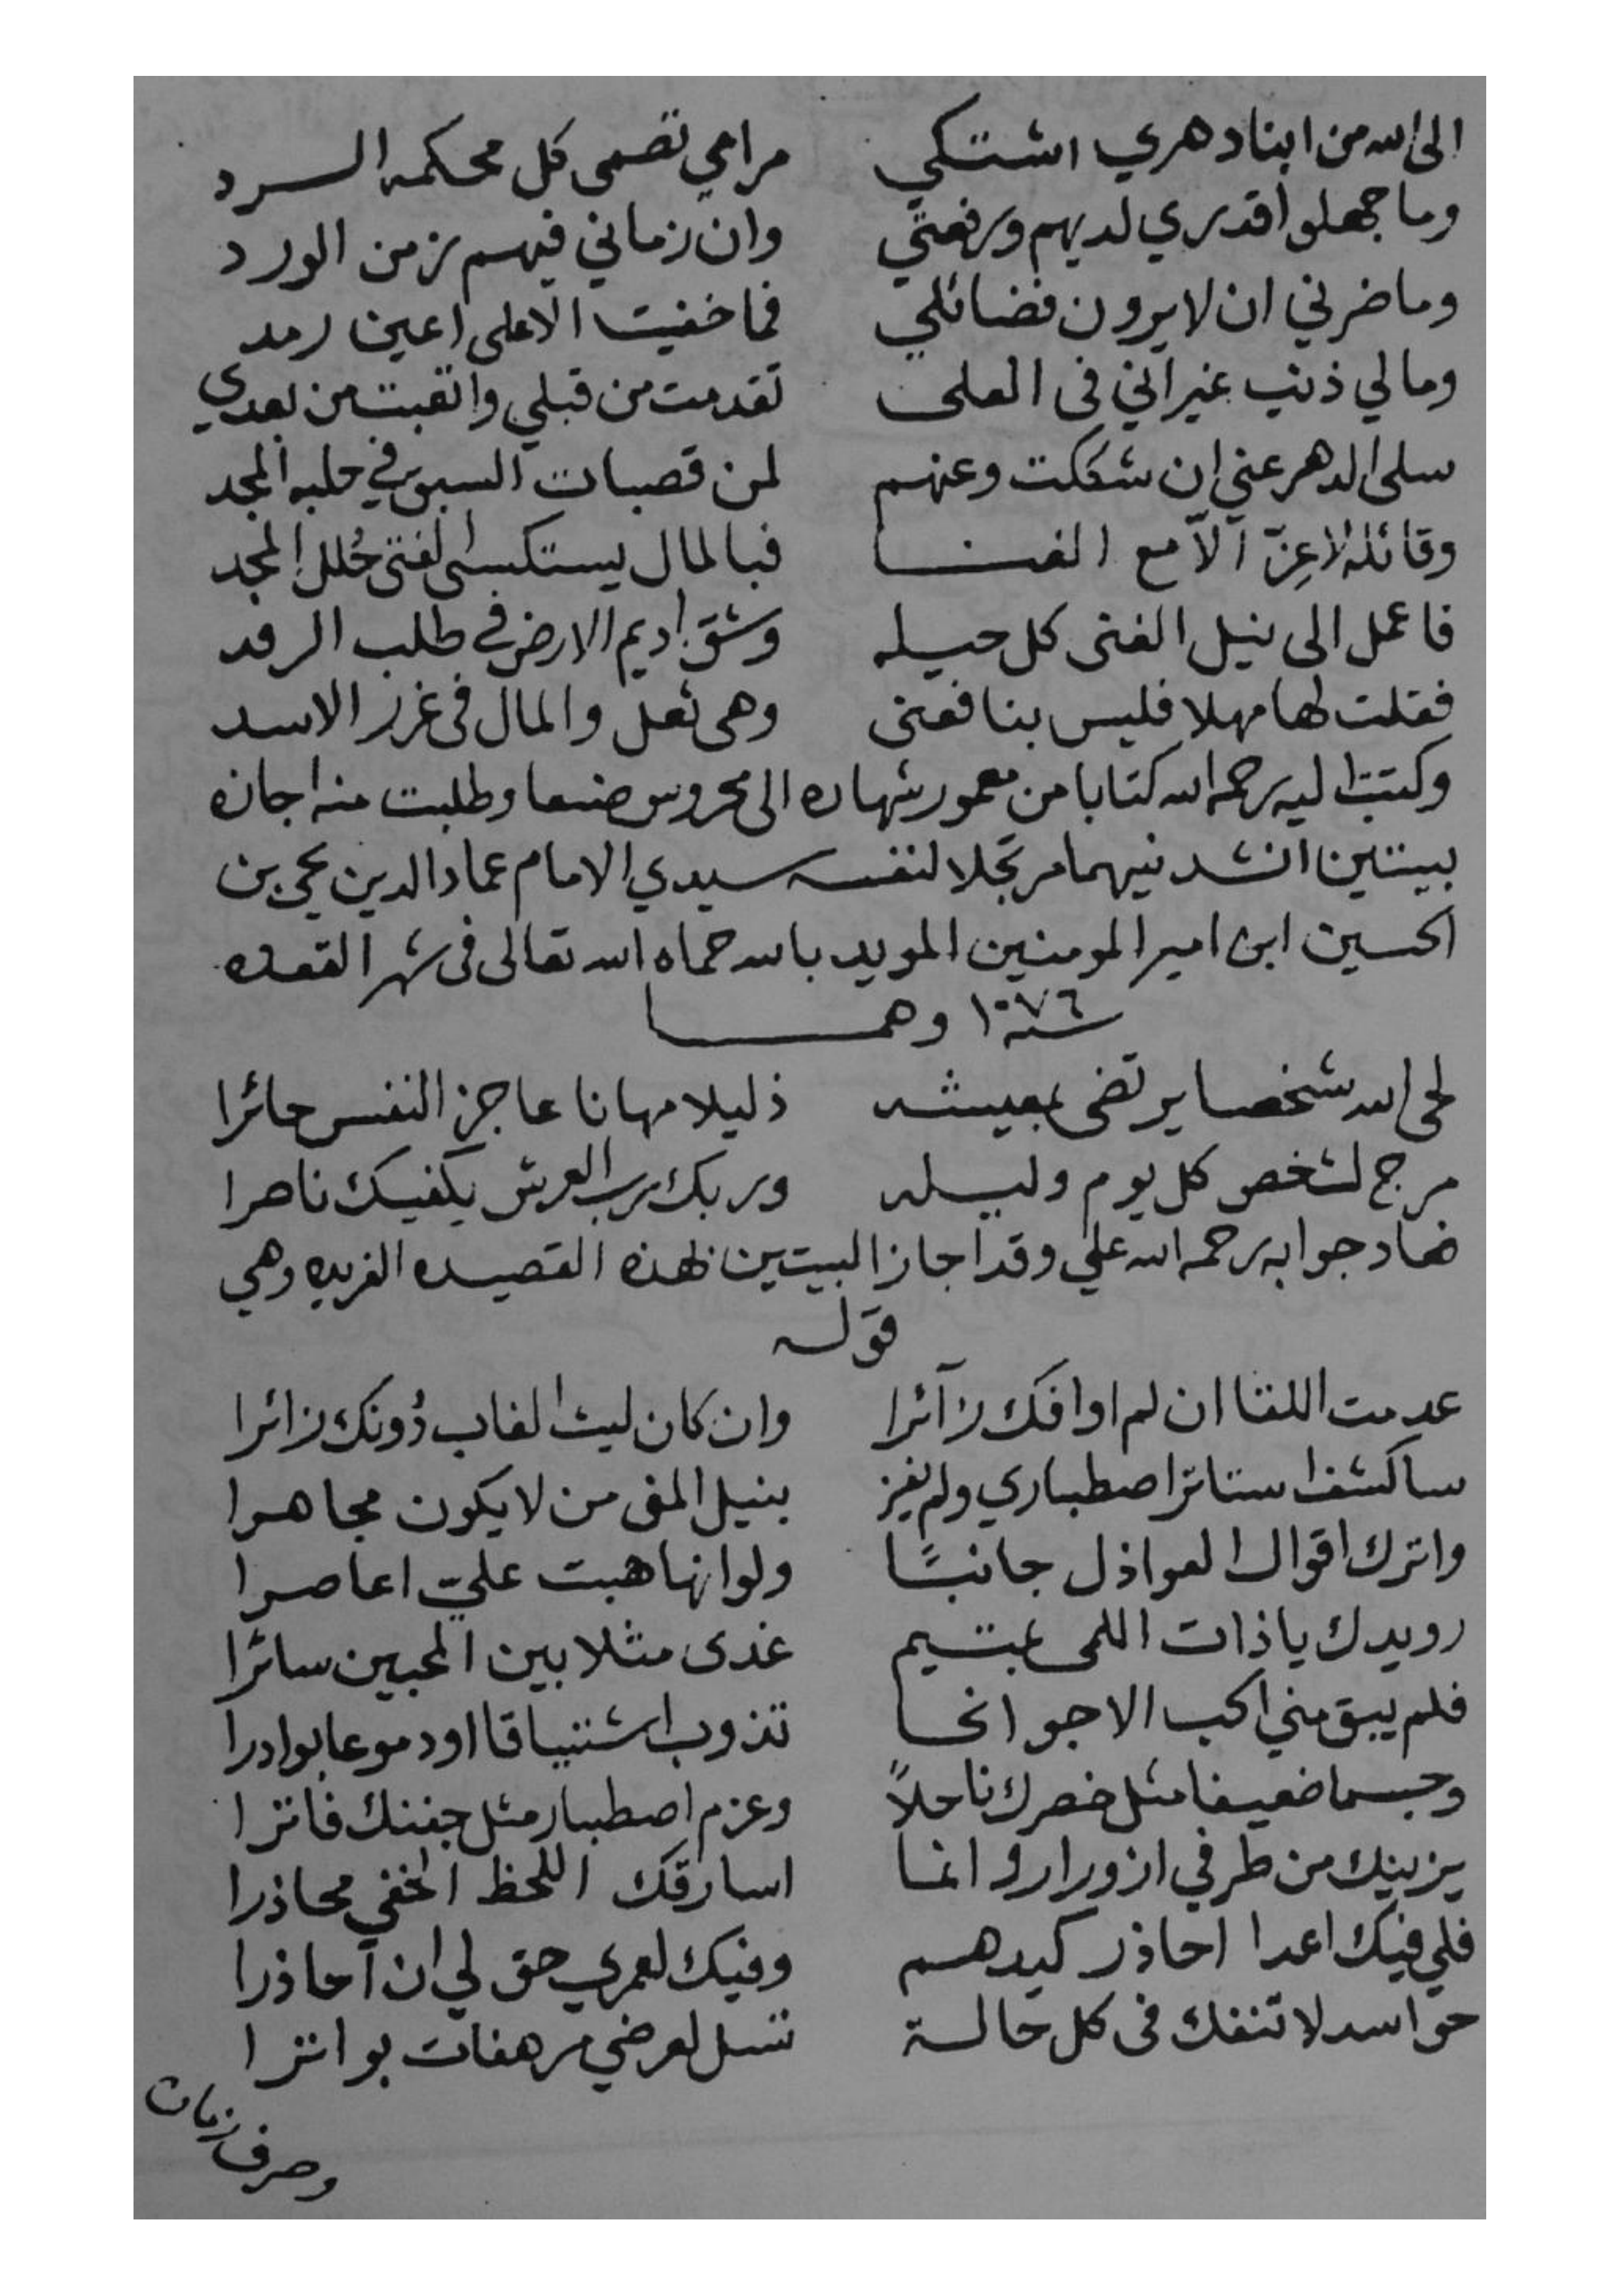 الى الله من ابنا دهري اشتكي مرامي تصمى كل محكمه السرد
وما جهلوا قدري لديهم ورفعتي وان زماني فيهم زمن الورد
وما ضرني ان لا يرون فضائلي فما خفيت الا على اعين رمد
ومالي ذنب غير اني فى العلى تقدمت من قبلي واتعبت من بعدي
سلى الدهر عني ان شككت وعنهم لمن قصبات السبق في حلبه المجد
وقائله لا عِزّ الّا مع الغنا فبالمال يستكسى الفتى حُلل المجد
فاعمل الى نيل الغنى كل حيله وشق اديم الارض في طلب الرفد
فقلت لها مهلا فليس بنافعى وهى ثعل والمال فى غرز الاسد
وكتبت اليه رحمه الله كتابا من معمور شهاره الى محروس صنعا وطلبت منه اجازه
بيتين انشدنيهما مرتجلا لنفسه سيدي الامام عماد الدين يحيى بن
الحسين ابن امير المومنين المويد بالله حماه الله تعالى فى شهر القعده
سنه ١٠٧٦ وهما
لحى الله شخصا يرتضى بمعيشه ذليلا مهانا عاجز النفس حائرا
مرج لشخص كل يوم وليله وربك رب العرش يكفيك ناصرا
فعاد جوابه رحمه الله علي وقد اجاز البيتين بهذه القصيده الفريده وهي
قوله
عدمت اللقا ان لم اوافك زآئرا وان كان ليث الغاب دُونك زائرا
ساكشف استار اصطباري ولم يفز بنيل المنى من لا يكون مجاهرا
واترك اقوال العواذل جانبًا ولو انها هبت علي اعاصرا
رويدك يا ذات اللمى بمتيم غدى مثلا بين المحبين سائرا
فلم يبق مني الحب الا جوانحا تذوب اشتياقا او دموعا بوادرا
وجسما ضعيفا مثل خصرك ناحلاً وعزم اصطبار مثل جفنك فاترا
يريبك من طرفي ازورار وانما اسارقك اللحظ الخفي محاذرا
فلي فيك اعدا احاذر كيدهم وفيك لعمري حق لي ان احاذرا
حواسد لا تنفك فى كل حالة تسل لعرضي مرهفات بواترا
وصرف زمان